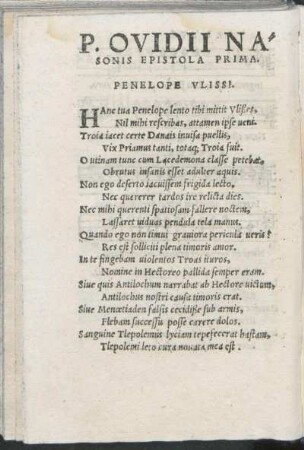 P. OVIDII NA-
SONIS EPISTOLA PRIMA.
PENELOPE VLISSI.
HAnc tua Penelope lento tibi mittit Vlisses,
Nil mihi rescribas, attamen ipse ueni.
Troia iacet certe Danais inuisa puellis,
Vix Priamus tanti, totaq; Troia fuit.
O utinam tunc cum Lacedemona classe petebat,
Obrutus insanis esset adulter aquis.
Non ego deserto iacuissem frigida lecto,
Nec quererer tardos ire relicta dies.
Nec mihi querenti spatiosam fallere noctem,
Lassaret uiduas pendula tela manus.
Quando ego non timui grauiora pericula ueris?
Res est solliciti plena timoris amor.
In te fingebam uiolentos Troas ituros,
Nomine in Hectoreo pallida semper eram.
Siue quis Antilochum narrabat ab Hectore uictum,
Antilochus nostri causa timoris erat.
Siue Menœtiaden falsis cecidisse sub armis,
Flebam successu posse carere dolos.
Sanguine Tlepolemus lyciam tepefecerat hastam,
Tlepolemi leto cura nouata mea est.